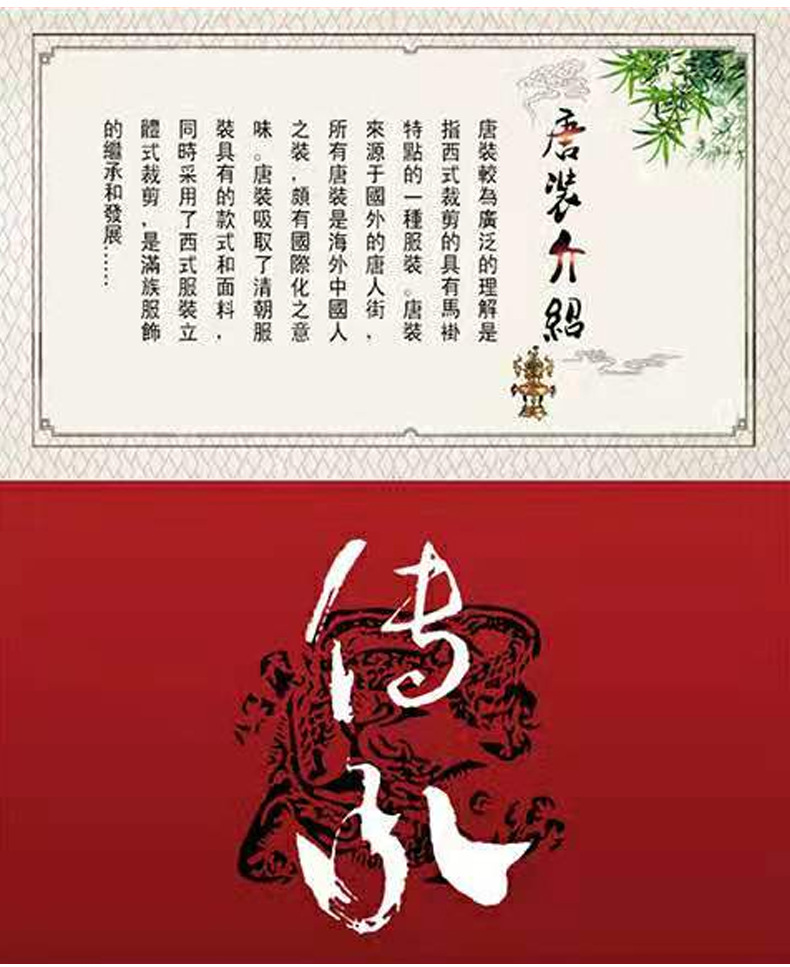 唐装介紹
唐裝較為廣泛的理解是
指西式裁剪的具有馬褂
特點的一種服裝。唐裝
來源于國外的唐人街，
所有唐裝是海外中國人
之裝，頗有國際化之意
味。唐裝吸取了清朝服
裝具有的款式和面料，
同時采用了西式服裝立
體式裁剪，是滿族服飾
的繼承和發展……
传承